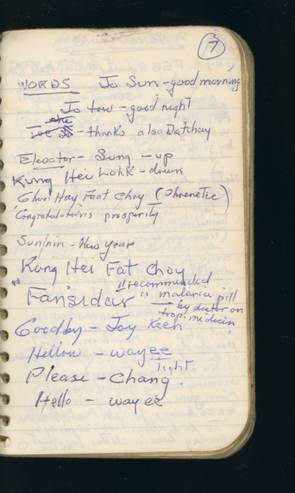 7
WORDS Jo Sun - good morning
Jo tow - good night
- thanks also Datchay
Elevator - Sung - up
Kung Hei Lohk - down
Ghun Hay Faat Choy (Phoenetic)
Congratulations prosperity
Sun nin - New year
Kung Hei Fat Choy
"Fansidar" "recommended
malaria pill
- by doctor on
trop. medicin"
Goodby - Joy Keen
Hellow - wayee
light
Please - Chang
Hello - wayee